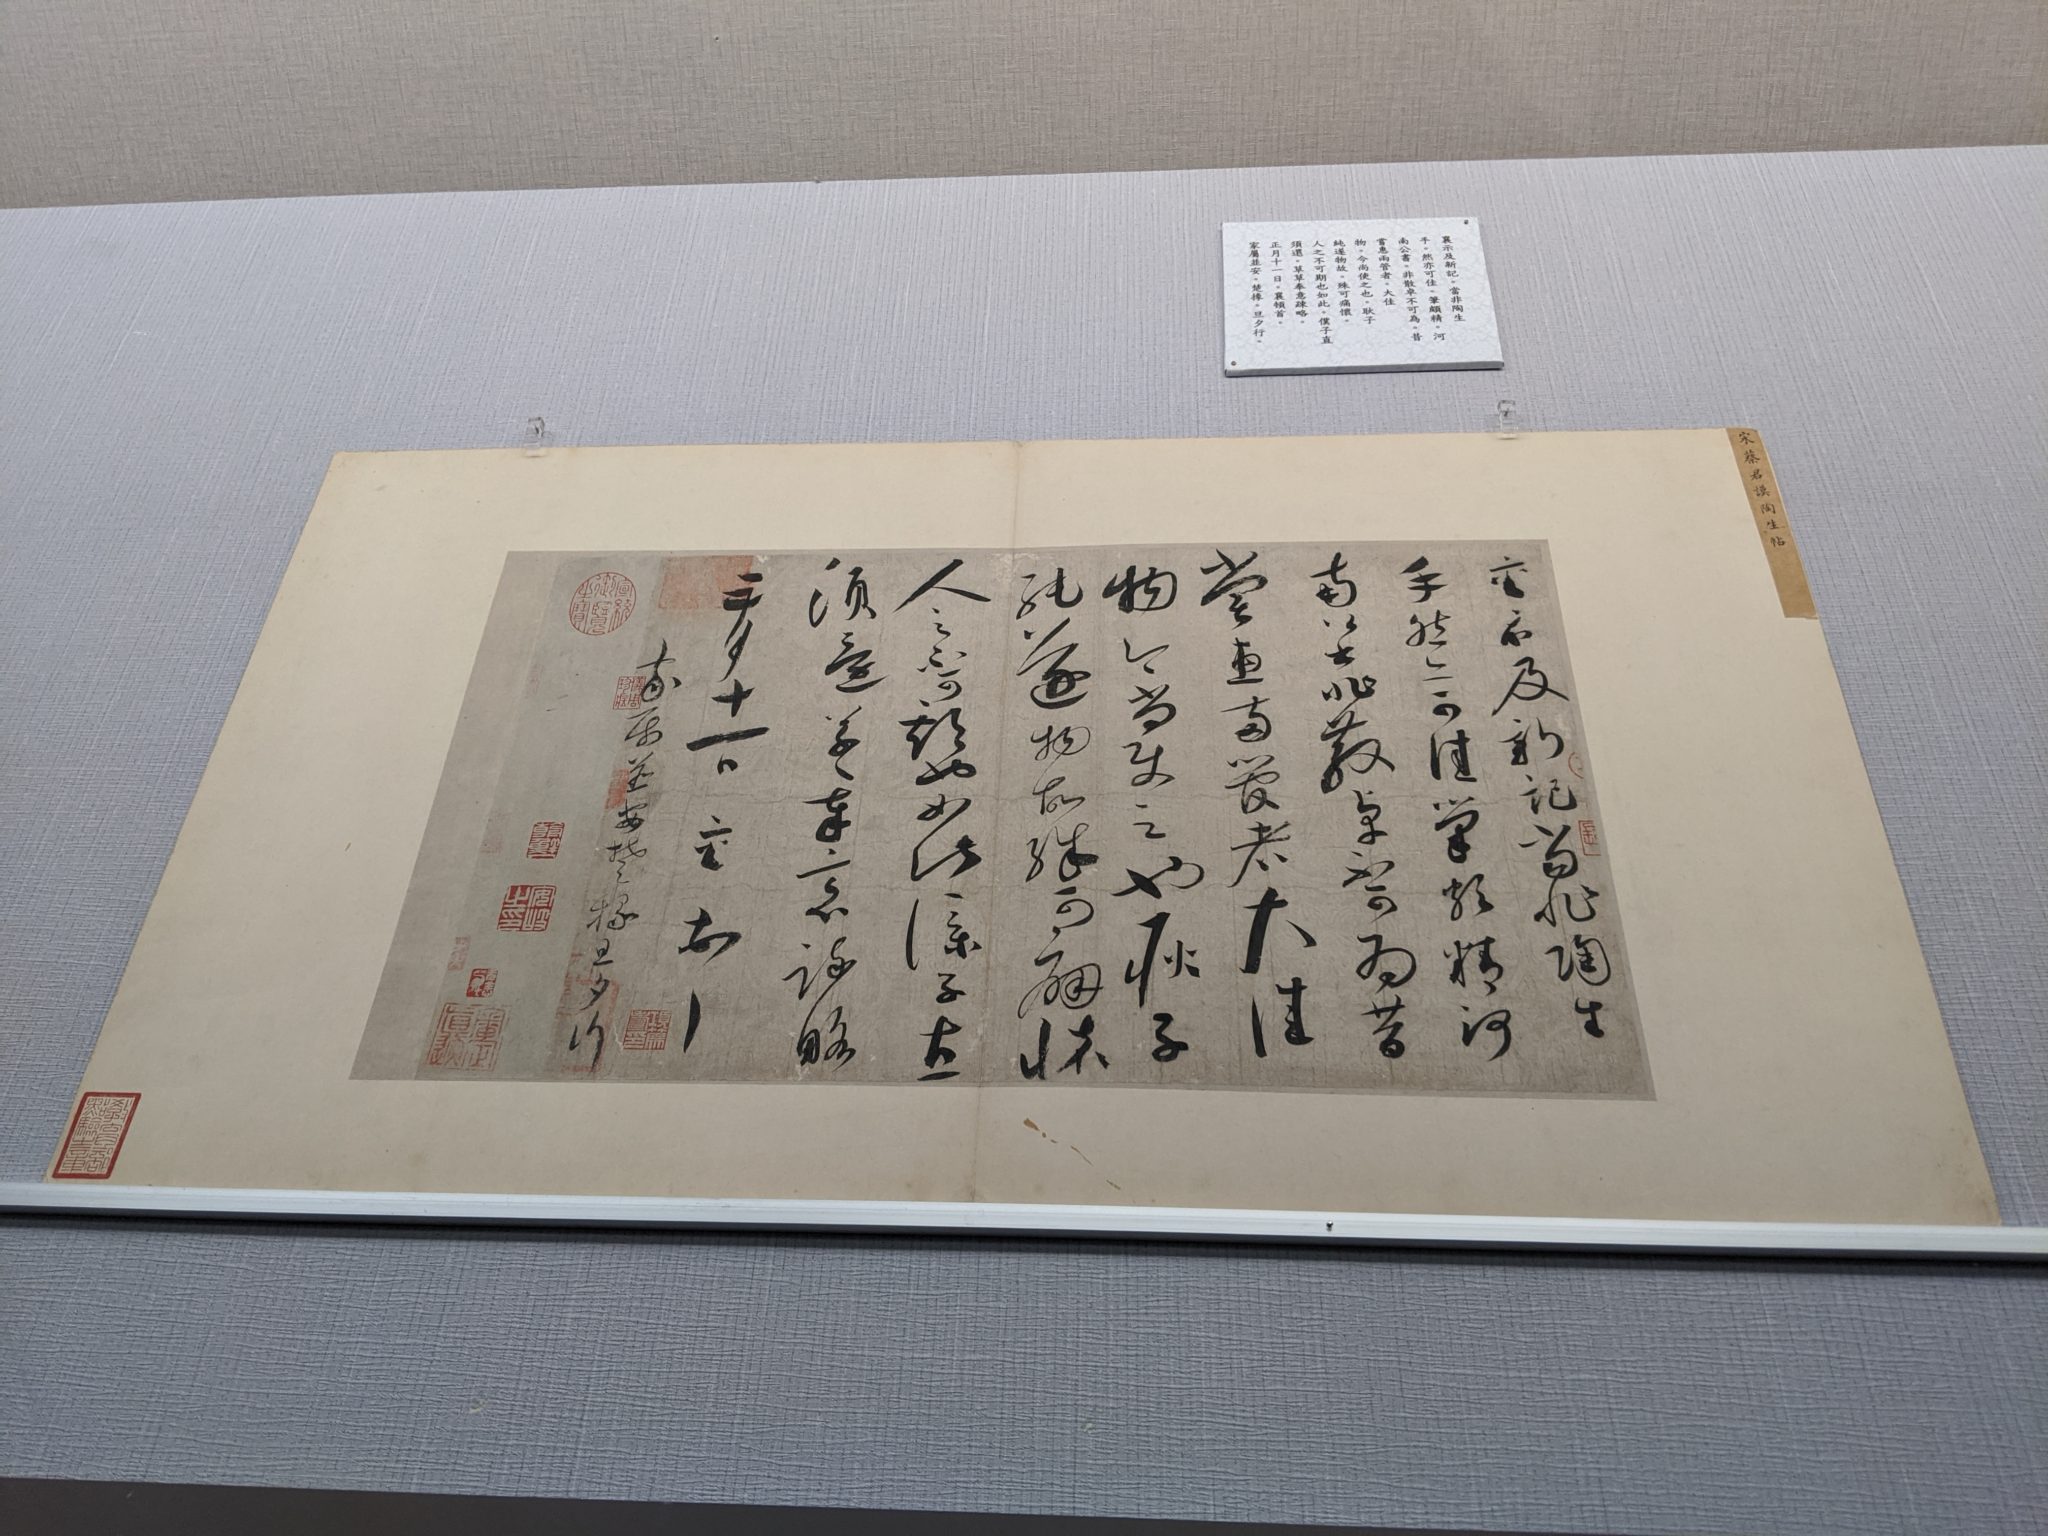 襄示及新記。當非陶生
手。然亦可佳。筆頗精。河
南公書。非散卓不可為。昔
嘗惠兩管者。大佳
物。今尚使之也。耿子
純遂物故。殊可痛懷。
人之不可期也如此。僕子直
須還。草草奉意疎略。
正月十一日。襄頓首。
家屬並安。楚掾。旦夕行。
宋蔡君謨陶生帖
襄示及新記當非陶生
手然亦可佳筆頗精河
南公書非散卓不可為昔
嘗惠兩管者大佳
物今尚使之也耿子
純遂物故殊可痛懷
人之不可期也如此僕子直
須還草草奉意疎略
正月十一日襄頓首
家屬並安楚掾旦夕行
宣統御覽之寶